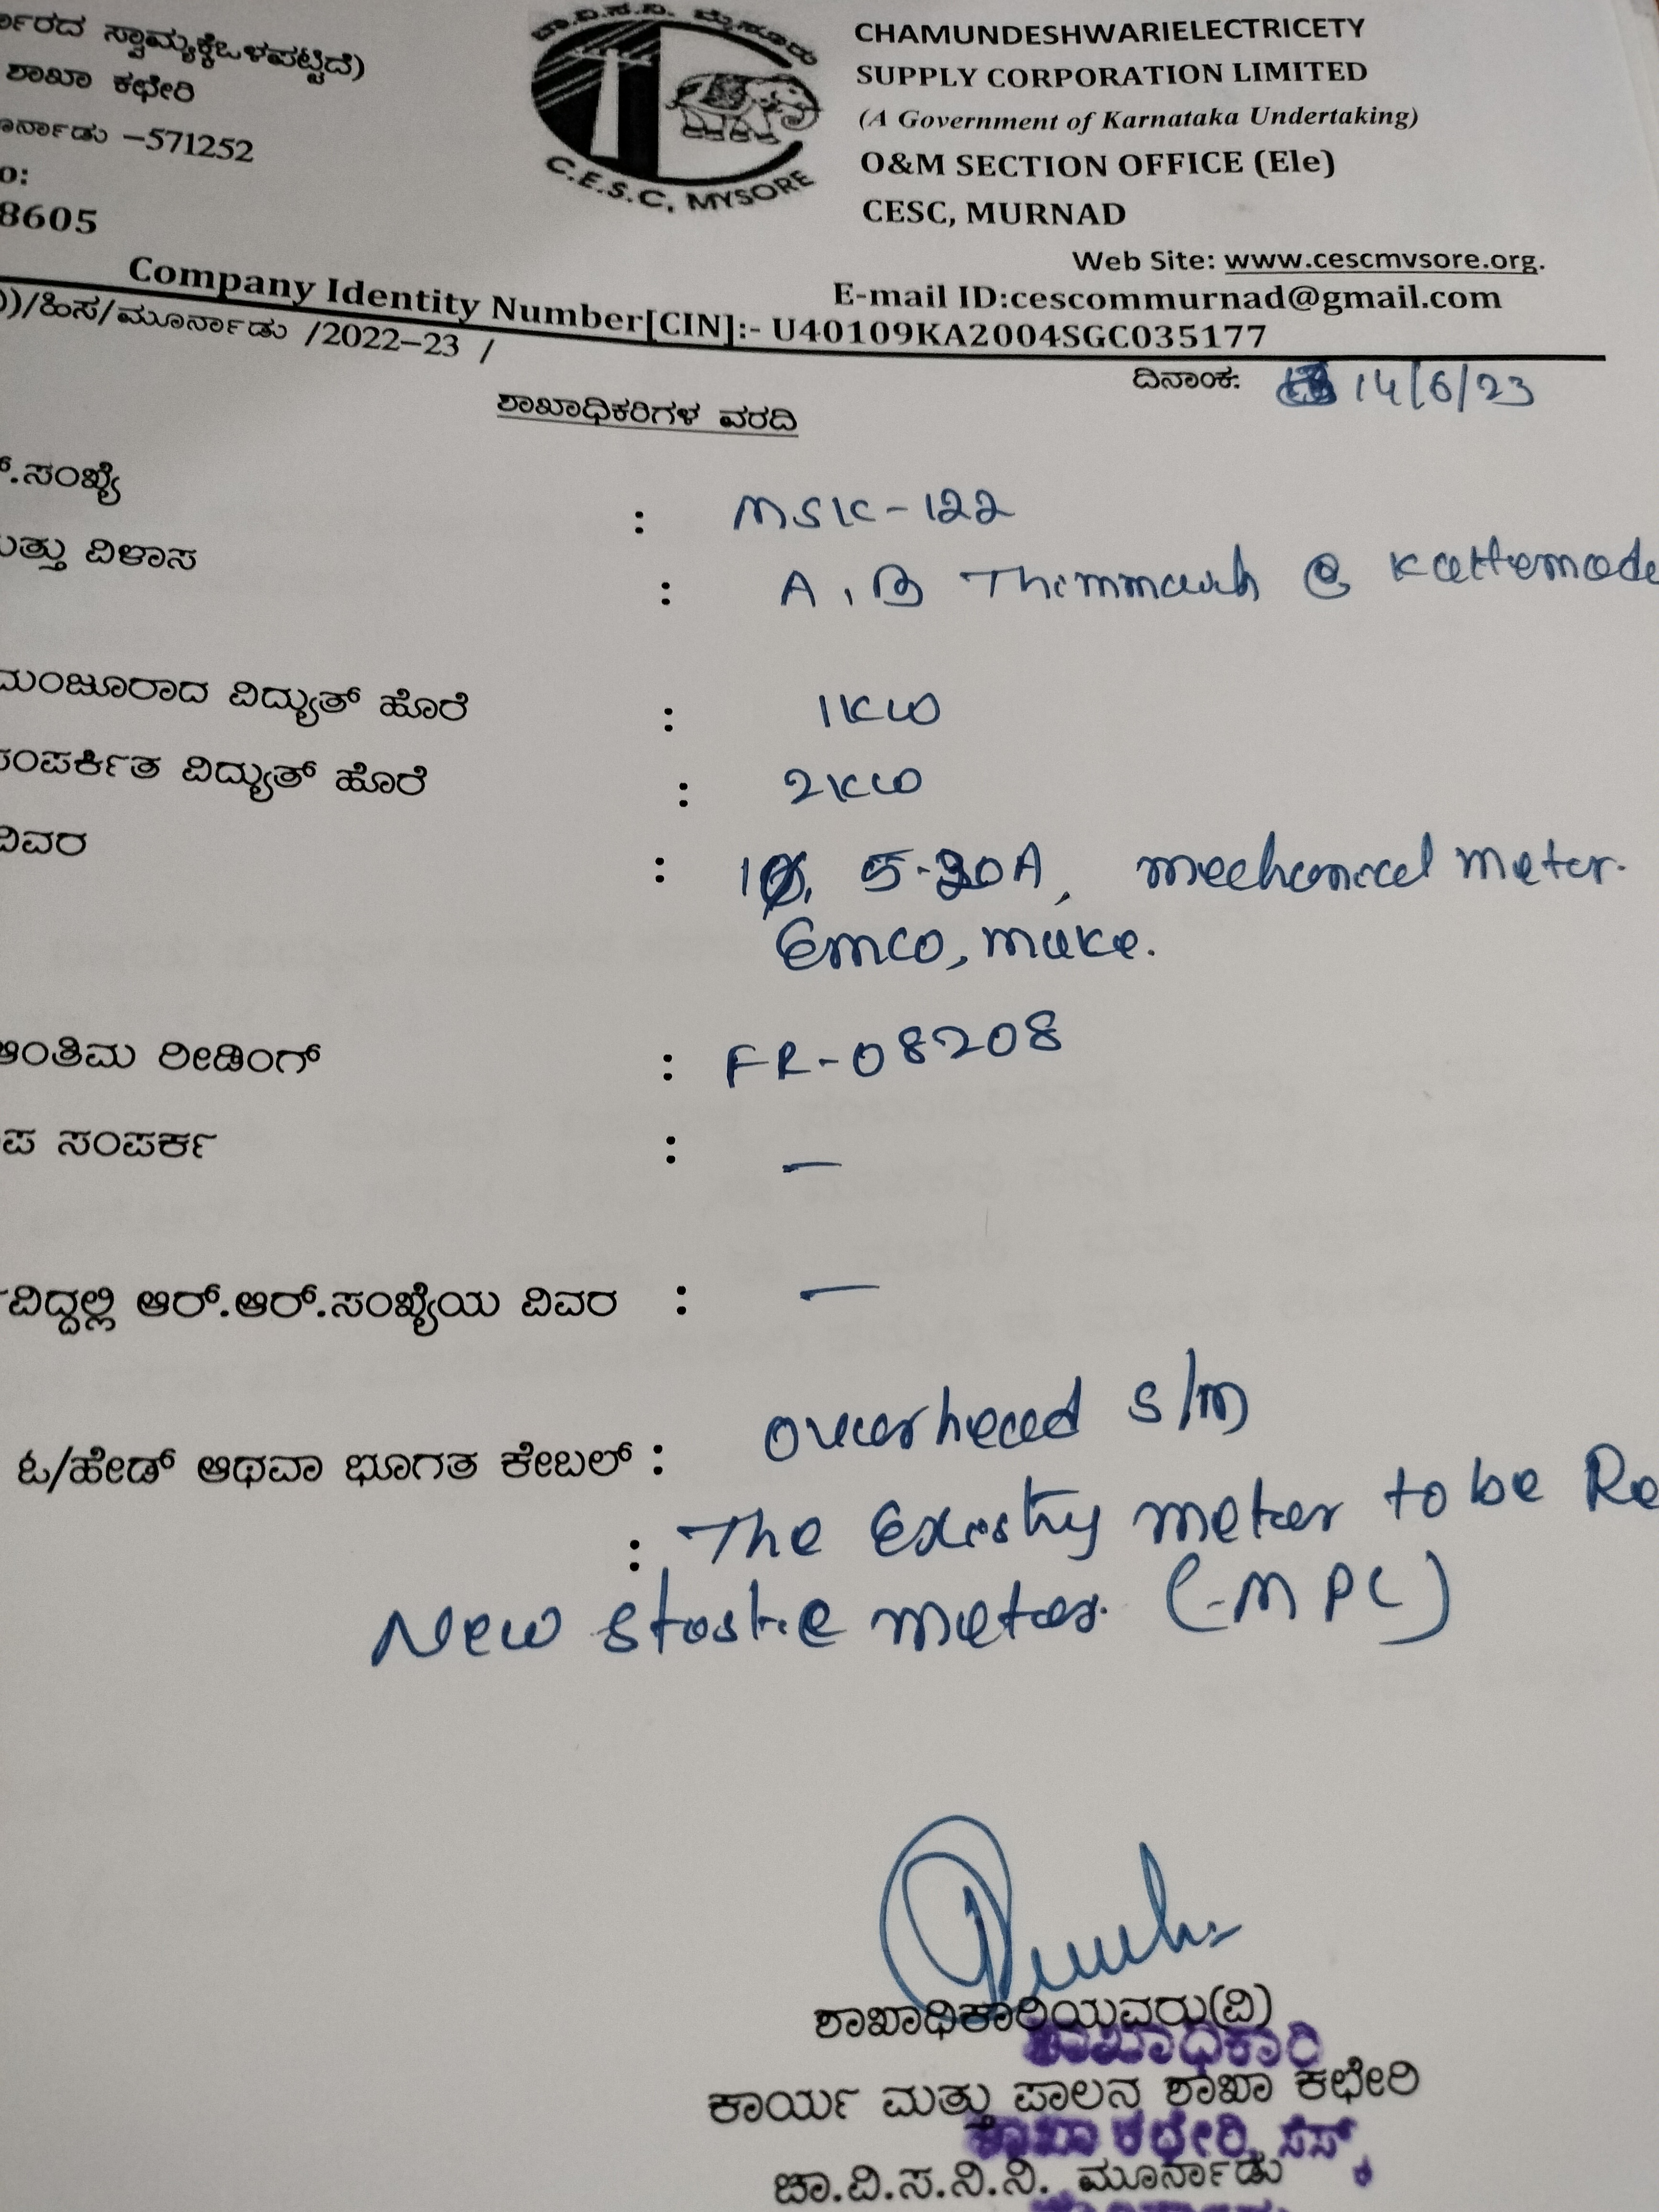 ಸ್ವಾಮ್ಯಕ್ಕೆಒಳಪಟ್ಟಿದೆ)
ಶಾಖಾ ಕಛೇರಿ
–571252
8605
ಚಾ.ವಿ.ಸ.ನಿ. ಮೈಸೂರು
C.E.S.C, MYSORE
CHAMUNDESHWARIELECTRICETY
SUPPLY CORPORATION LIMITED
(A Government of Karnataka Undertaking)
O&M SECTION OFFICE (Ele)
CESC, MURNAD
Web Site: www.cescmvsore.org.
E-mail ID:cescommurnad@gmail.com
Company Identity Number[CIN]:- U40109KA2004SGC035177
/ಹಿಸ/ಮೂರ್ನಾಡು /2022–23 /
ದಿನಾಂಕ: 14/6/23
ಶಾಖಾಧಿಕರಿಗಳ ವರದಿ
.ಸಂಖ್ಯೆ : MSK-122
ವಿಳಾಸ : A.B Thimmaiah @ Kattemade
ಮಂಜೂರಾದ ವಿದ್ಯುತ್ ಹೊರೆ : 1KW
ಸಂಪರ್ಕಿತ ವಿದ್ಯುತ್ ಹೊರೆ : 2KW
ವಿವರ : 1Ø, 5-20A, mechanical meter.
Emco, make.
ಅಂತಿಮ ರೀಡಿಂಗ್ : FR-08208
ಸಂಪರ್ಕ : —
ಆರ್.ಆರ್.ಸಂಖ್ಯೆಯ ವಿವರ : —
ಓ/ಹೇಡ್ ಆಥವಾ ಭೂಗತ ಕೇಬಲ್ : overhead S/M
: The Existing meter to be Re
New static meter. (-MPC)
ಶಾಖಾಧಿಕಾರಿಯವರು(ವಿ)
ಶಾಖಾಧಿಕಾರಿ
ಕಾರ್ಯ ಮತ್ತು ಪಾಲನ ಶಾಖಾ ಕಛೇರಿ
ಶಾಖಾ ಕಛೇರಿ, ಸೆಸ್ಕ್
ಚಾ.ವಿ.ಸ.ನಿ.ನಿ. ಮೂರ್ನಾಡು